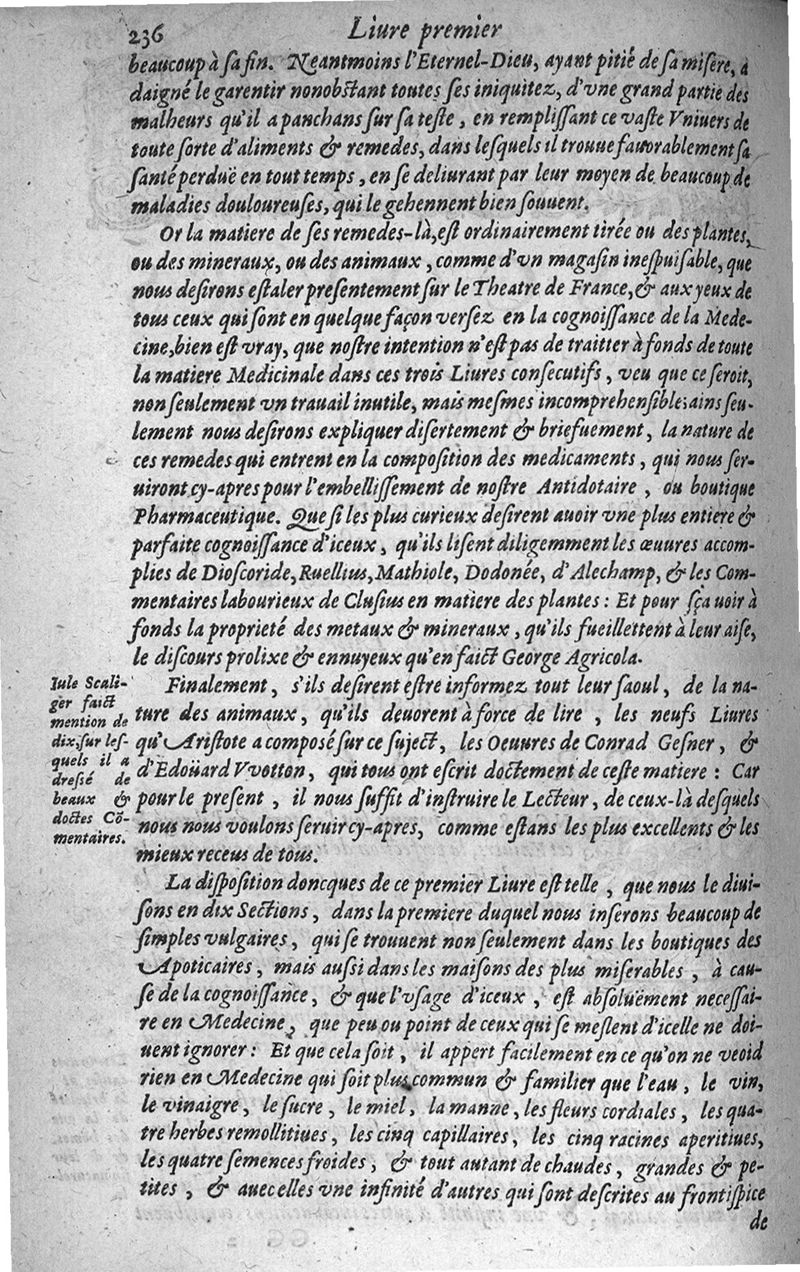 236 Liure premier
beaucoup à sa fin. Neantmoins l'Eternel-Dieu, ayant pitié de sa misere, à
daigné le garentir nonobstant toutes ses iniquitez, d'vne grand partie des
malheurs qu'il a panchans sur sa teste, en remplissant ce vaste Vniuers de
toute sorte d'aliments & remedes, dans lesquels il trouue fauorablement sa
santé perduë en tout temps, en se deliurant par leur moyen de beaucoup de
maladies douloureuses, qui le gehennent bien souuent.
Or la matiere de ses remedes-là, est ordinairement tirée ou des plantes,
ou des mineraux, ou des animaux, comme d'vn magasin inespuisable, que
nous desirons estaler presentement sur le Theatre de France, & aux yeux de
tous ceux qui sont en quelque façon versez en la cognoissance de la Mede-
cine, bien est vray, que nostre intention n'est pas de traitter à fonds de toute
la matiere Medicinale dans ces trois Liures consecutifs, veu que ce seroit,
non seulement vn trauail inutile, mais mesmes incomprehensible; ains seu-
lement nous desirons expliquer disertement & briefuement, la nature de
ces remedes qui entrent en la composition des medicaments, qui nous ser-
uiront cy-apres pour l'embellissement de nostre Antidotaire, ou boutique
Pharmaceutique. Que si les plus curieux desirent auoir vne plus entiere &
parfaite cognoissance d'iceux, qu'ils lisent diligemment les œuures accom-
plies de Dioscoride, Ruellius, Mathiole, Dodonée, d'Alechamp, & les Com-
mentaires labourieux de Clusius en matiere des plantes : Et pour sçauoir à
fonds la proprieté des metaux & mineraux, qu'ils fueillettent à leur aise,
le discours prolixe & ennuyeux qu'en faict George Agricola.
Finalement, s'ils desirent estre informez tout leur saoul, de la na-
ture des animaux, qu'ils deuorent à force de lire, les neufs Liures
qu'Aristote a composé sur ce suject, les Oeuures de Conrad Gesner, &
d'Edoüard Vvotton, qui tous ont escrit doctement de ceste matiere : Car
pour le present, il nous suffit d'instruire le Lecteur, de ceux-là desquels
nous nous voulons seruir cy-apres, comme estans les plus excellents & les
mieux receus de tous.
Iule Scali-
ger faict
mention de
dix, sur les-
quels il a
dressé de
beaux &
doctes Cõ-
mentaires.
La disposition doncques de ce premier Liure est telle, que nous le diui-
sons en dix Sections, dans la premiere duquel nous inserons beaucoup de
simples vulgaires, qui se trouuent non seulement dans les boutiques des
Apoticaires, mais aussi dans les maisons des plus miserables, à cau-
se de la cognoissance, & que l'vsage d'iceux, est absoluëment necessai-
re en Medecine, que peu ou point de ceux qui se meslent d'icelle ne doi-
uent ignorer : Et que cela soit, il appert facilement en ce qu'on ne veoid
rien en Medecine qui soit plus commun & familier que l'eau, le vin,
le vinaigre, le sucre, le miel, la manne, les fleurs cordiales, les qua-
tre herbes remollitiues, les cinq capillaires, les cinq racines aperitiues,
les quatre semences froides, & tout autant de chaudes, grandes & pe-
tites, & auec elles vne infinité d'autres qui sont descrites au frontispice
de